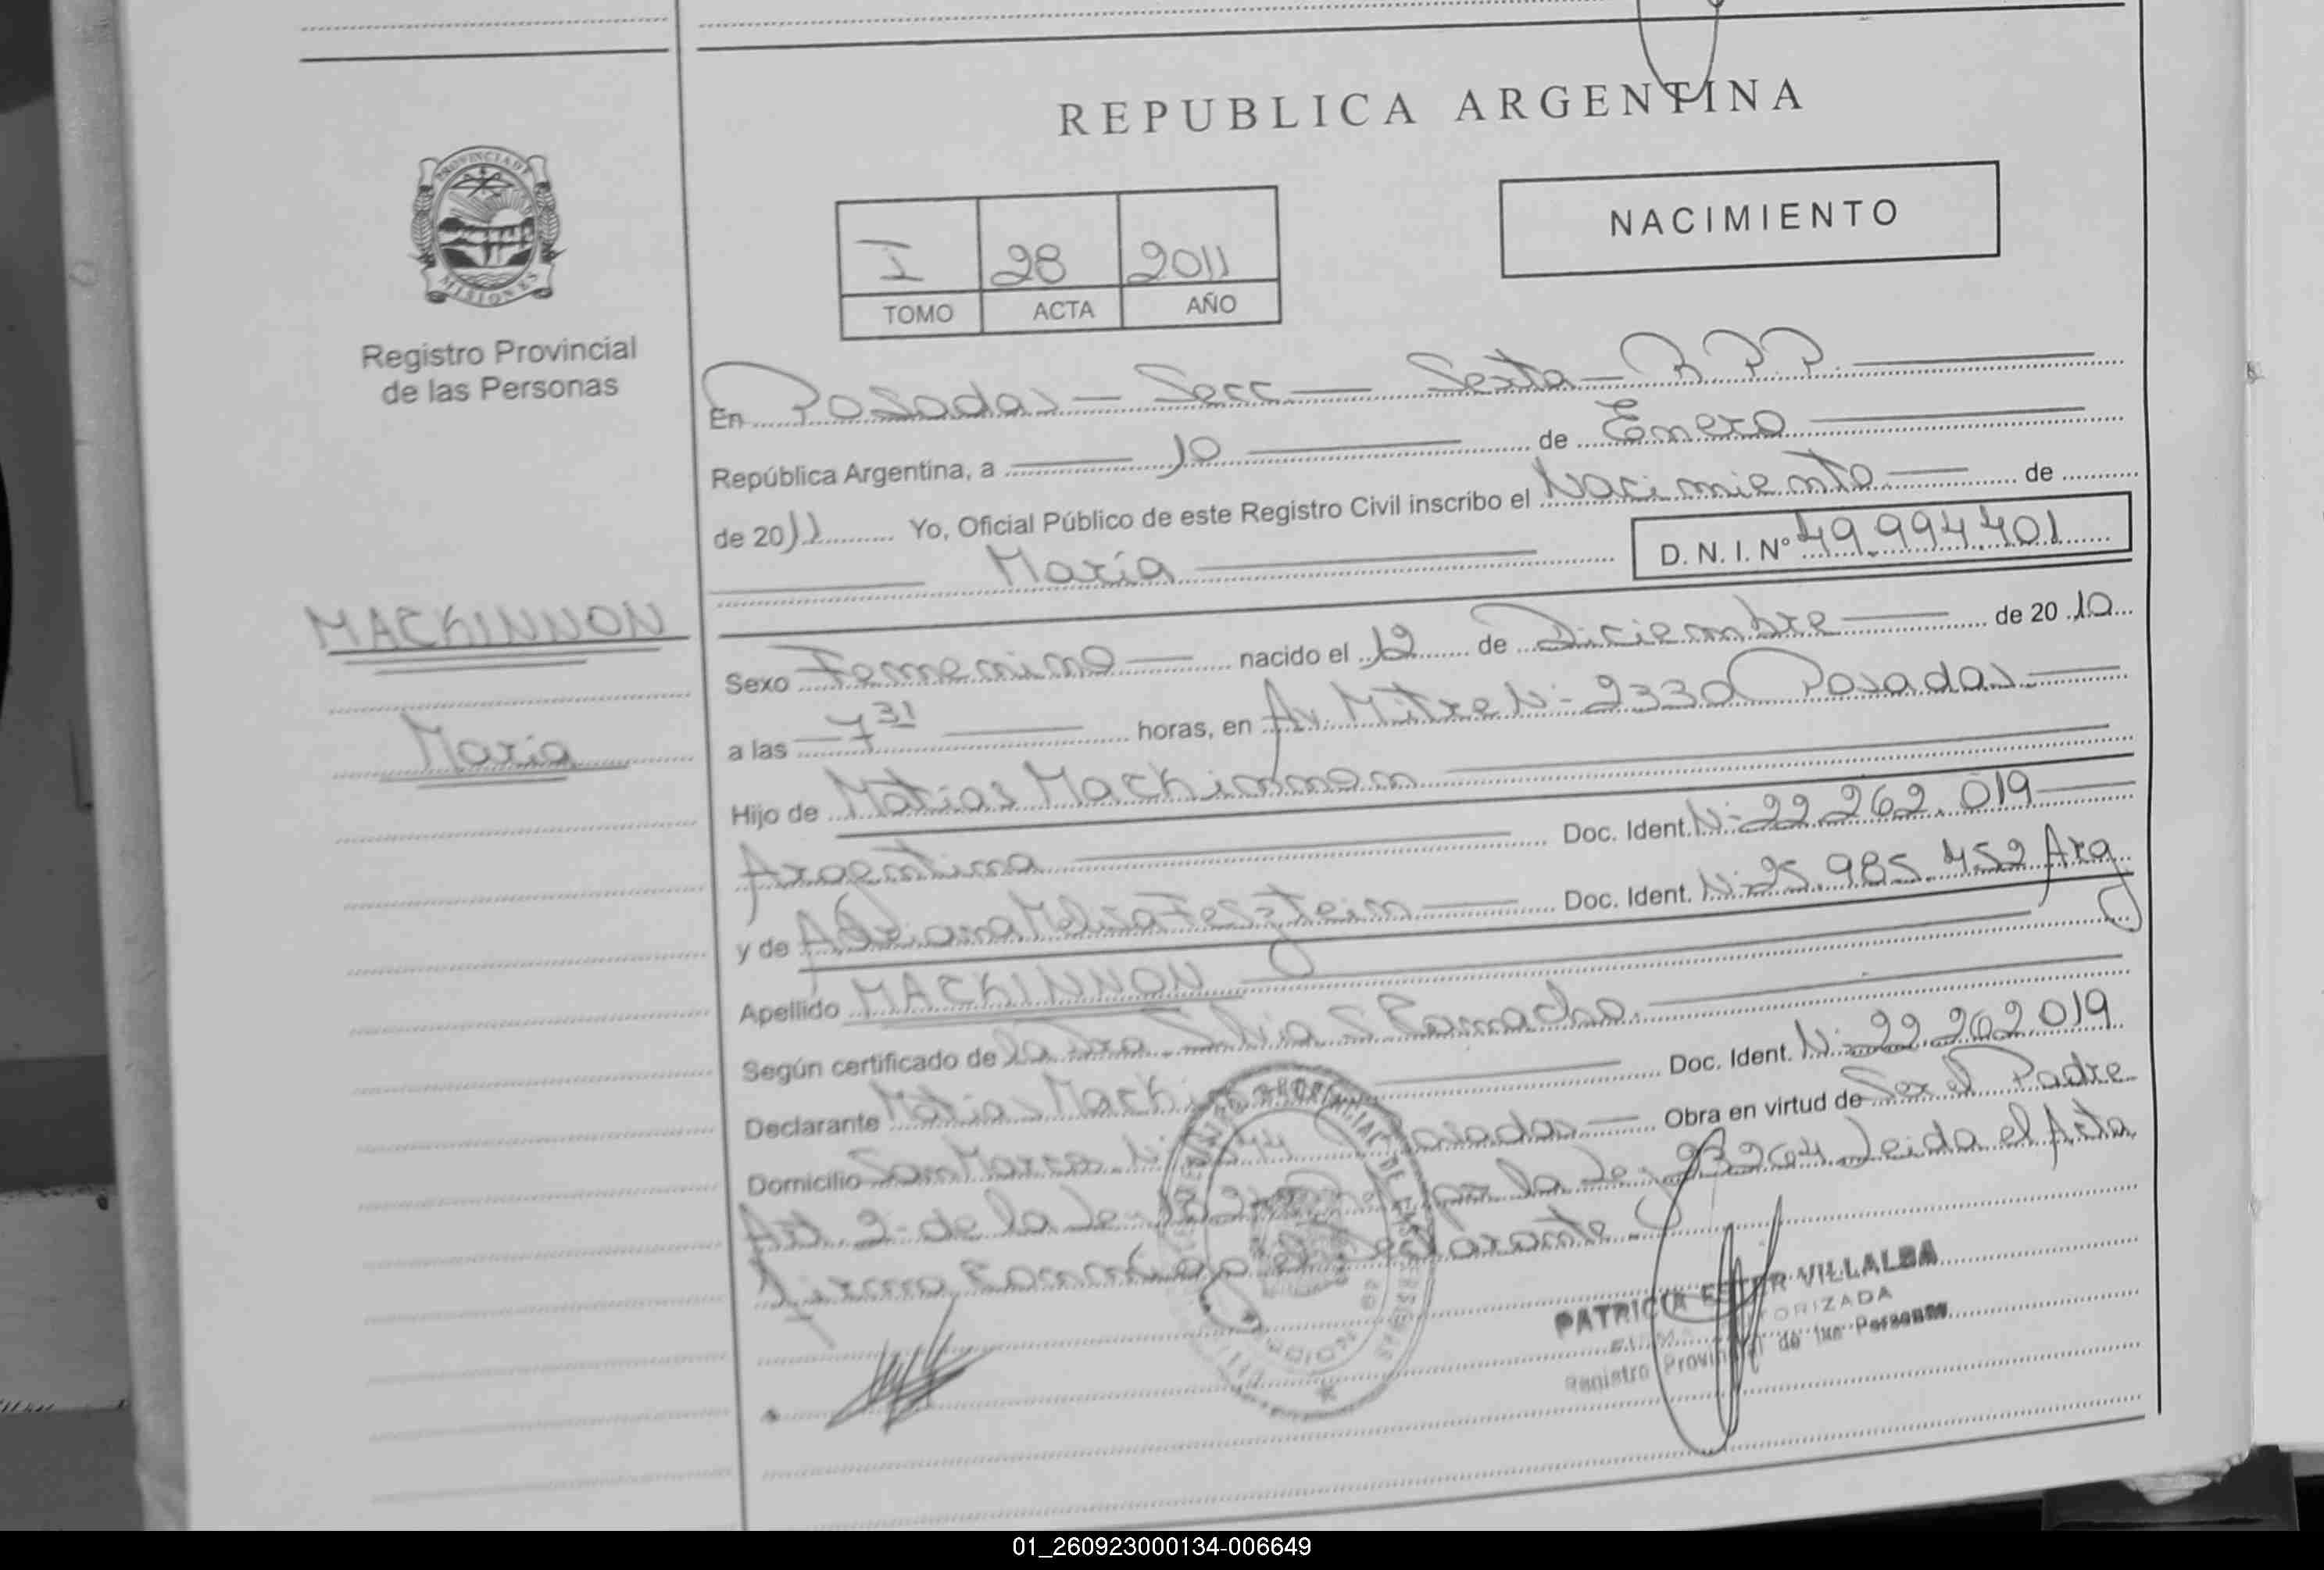 REPUBLICA ARGENTINA
PROVINCIA DE
MISIONES
Registro Provincial
de las Personas
NACIMIENTO
I 28 2011
TOMO ACTA AÑO
En Posadas - Secc - Sexta - R.P.P.
República Argentina, a 10 de Enero
de 2011 Yo, Oficial Público de este Registro Civil inscribo el Nacimiento de
María D. N. I. N° 49.994.401
MACKINNON
María
Sexo Femenino nacido el 12 de Diciembre de 2010
a las 7 31 horas, en Av. Mitre N: 2330 Posadas
Hijo de Matias Mackinnon
Argentina Doc. Ident. N: 22.262.019
y de Doc. Ident. N: 25.985.452 Arg
Apellido MACKINNON
Según certificado de
Declarante Matias Mackinnon Doc. Ident. N: 22.262.019
Domicilio Posadas Obra en virtud de Ser el Padre
Art. 2 de la Ley por la Ley Leida el Acta
PATRICIA ESTER VILLALBA
AUTORIZADA
Registro Provincial de las Personas
01_260923000134-006649